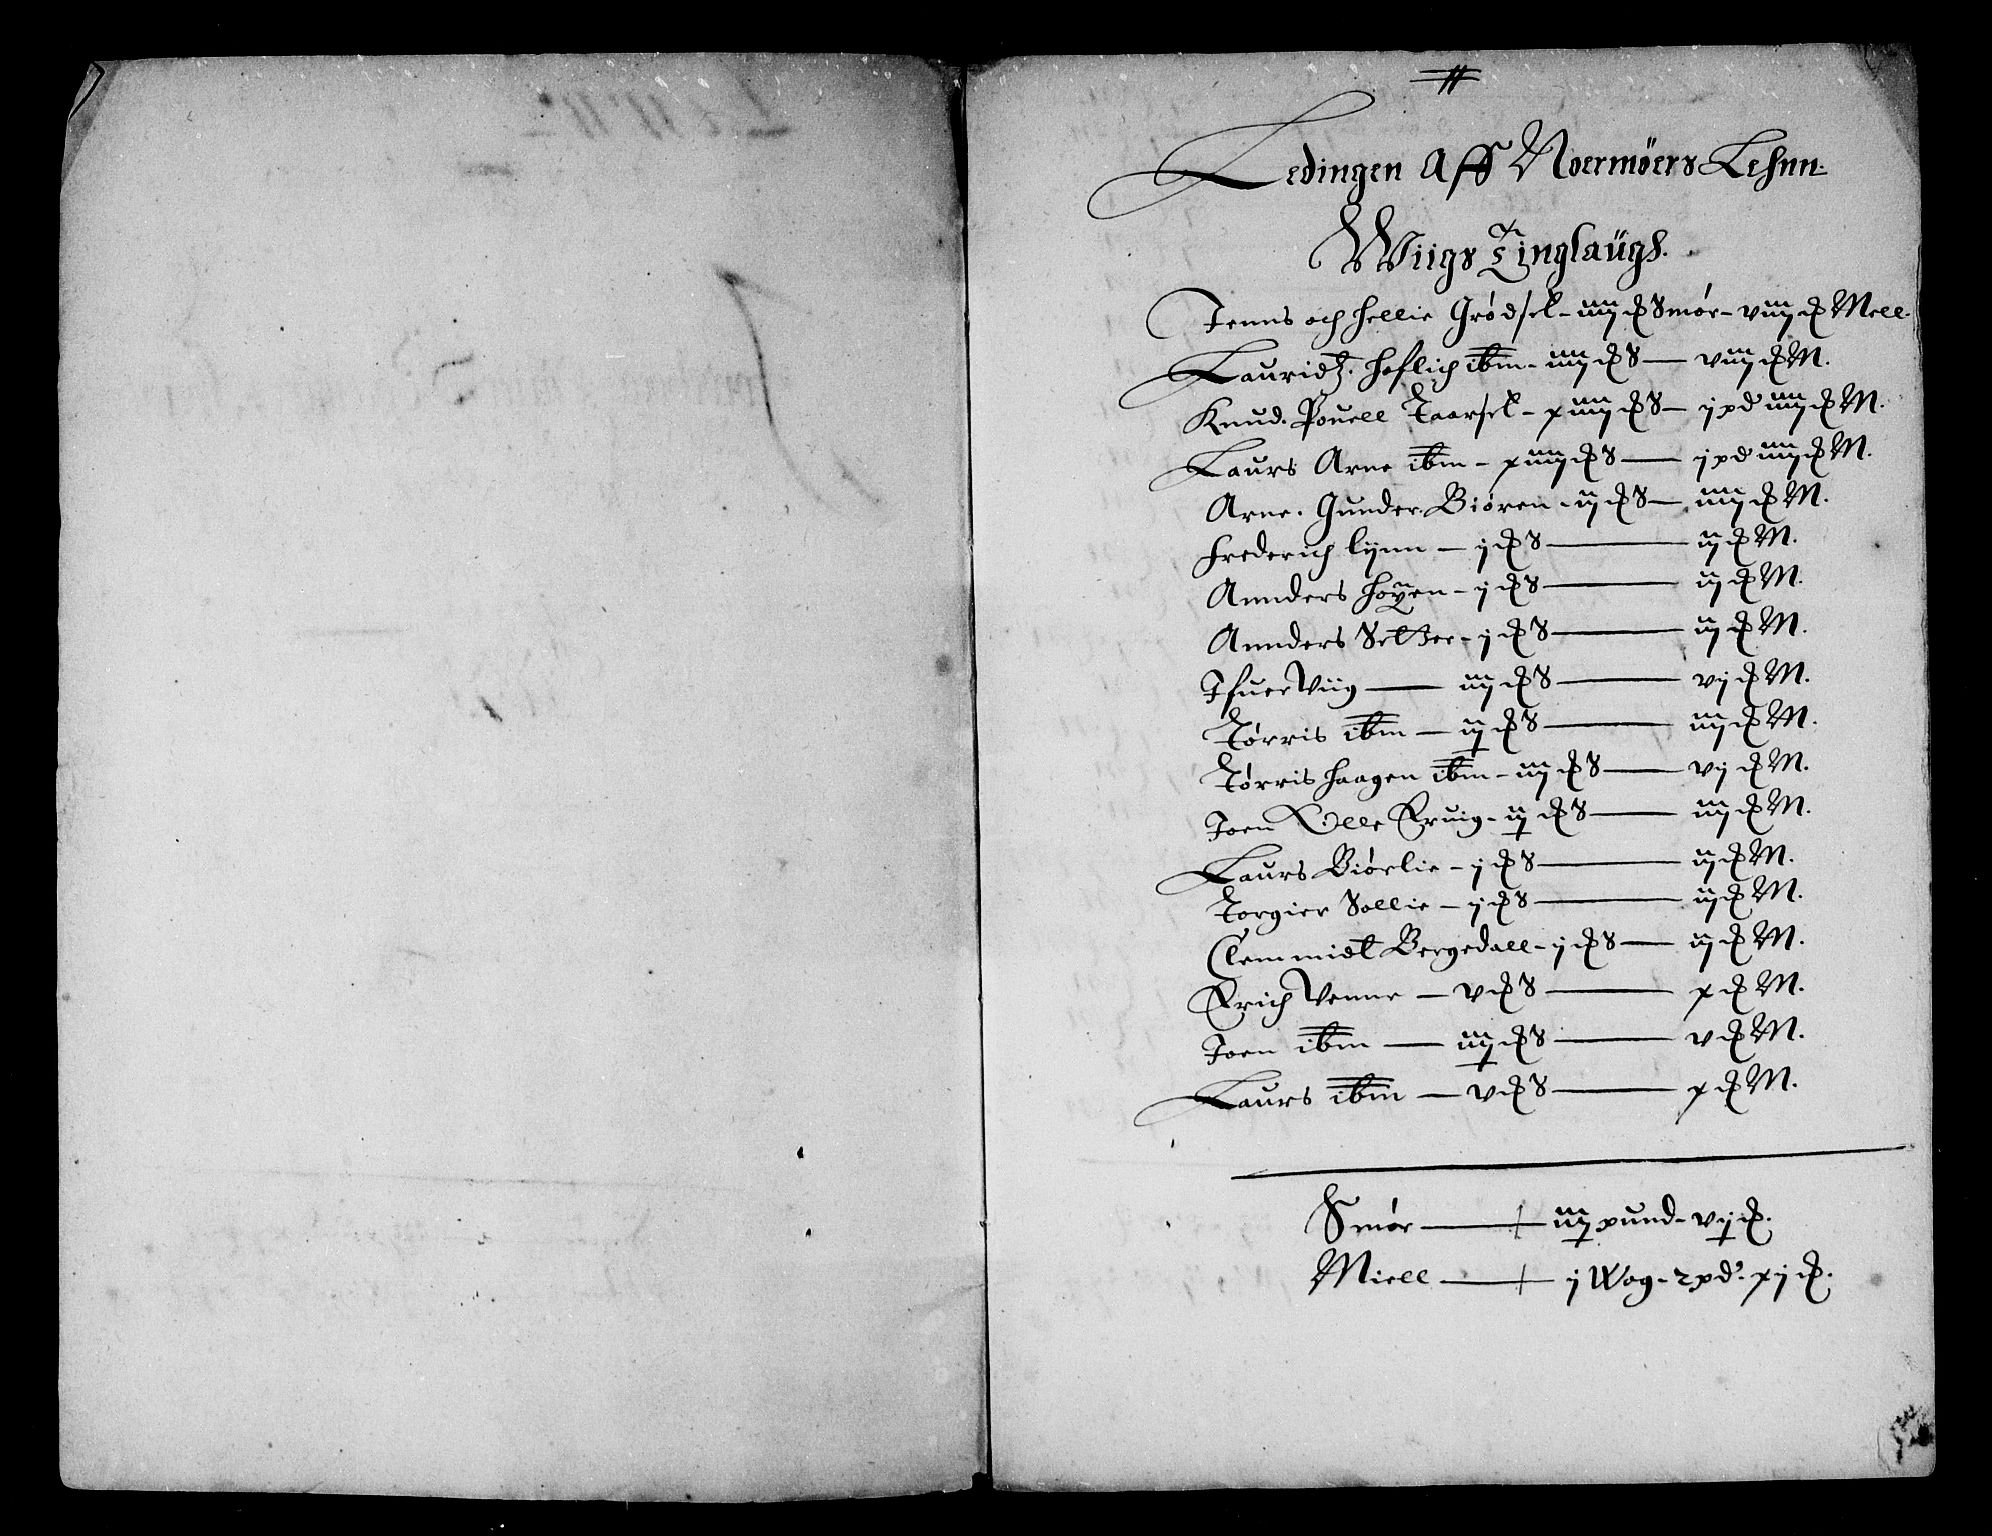 Ledingen Aff Noermøers Lehnn
Wiigs Tinglaügh.
Jenns och hellie Grødsel - iiij ℔ Smør - viij ℔ Mell.
Lauridz. heflich ibm - iiij ℔ S — viij ℔ M.
Knud. Pouell Taarsel - xiiij ℔ S — j pd iiij ℔ M.
Laurs Arne ibm - xiiij ℔ S — j pd iiij ℔ M.
Arne. Gunder. Biøren - ij ℔ S — iiij ℔ M.
Frederich lynn — j ℔ S — ij ℔ M.
Annders høyen - j ℔ S — ij ℔ M.
Annders Setter - j ℔ S — ij ℔ M.
Ifuer Viig — iij ℔ S — vj ℔ M.
Tørris ibm — ij ℔ S — iiij ℔ M.
Tørris haagen ibm - iij ℔ S — vj ℔ M.
Joen Olle Kruig - ij ℔ S — iiij ℔ M.
Laurs Biørlie - j ℔ S — ij ℔ M.
Torgier Sollie - j ℔ S — ij ℔ M.
Clemmidt Bergedall - j ℔ S — ij ℔ M.
Erich Venne — v ℔ S — x ℔ M.
Joen ibm — iij ℔ S — v ℔ M.
Laurs ibm — v ℔ S — x ℔ M.
Smør — iij pund - vij ℔.
Miell — j Wog - 2 pd. xj ℔.